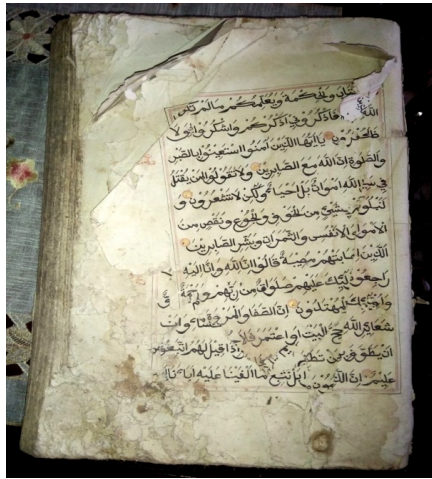 والحكمة ويعلمكم مالم
الله فاذكروني اذكركم واشكروا لي ولا
تكفرون يا ايها الذين امنوا استعينوا بالصبر
والصلوة ان الله مع الصابرين ولا تقولوا لمن يقتل
في سبيل الله اموات بل احياء ولكن لا تشعرون و
لنبلونكم بشيء من الخوف والجوع ونقص من
الاموال والانفس والثمرات وبشر الصابرين
الذين اصابتهم مصيبة قالوا انا لله وانا اليه
راجعون اولئك عليهم صلوات من ربهم ورحمة
واولئك هم المهتدون ان الصفا والمروة
شعائر الله حج البيت او اعتمر فلا
ان يطوف اذا قيل لهم اتبعوا
عليم ان بل نتبع ما الفينا عليه اباءنا